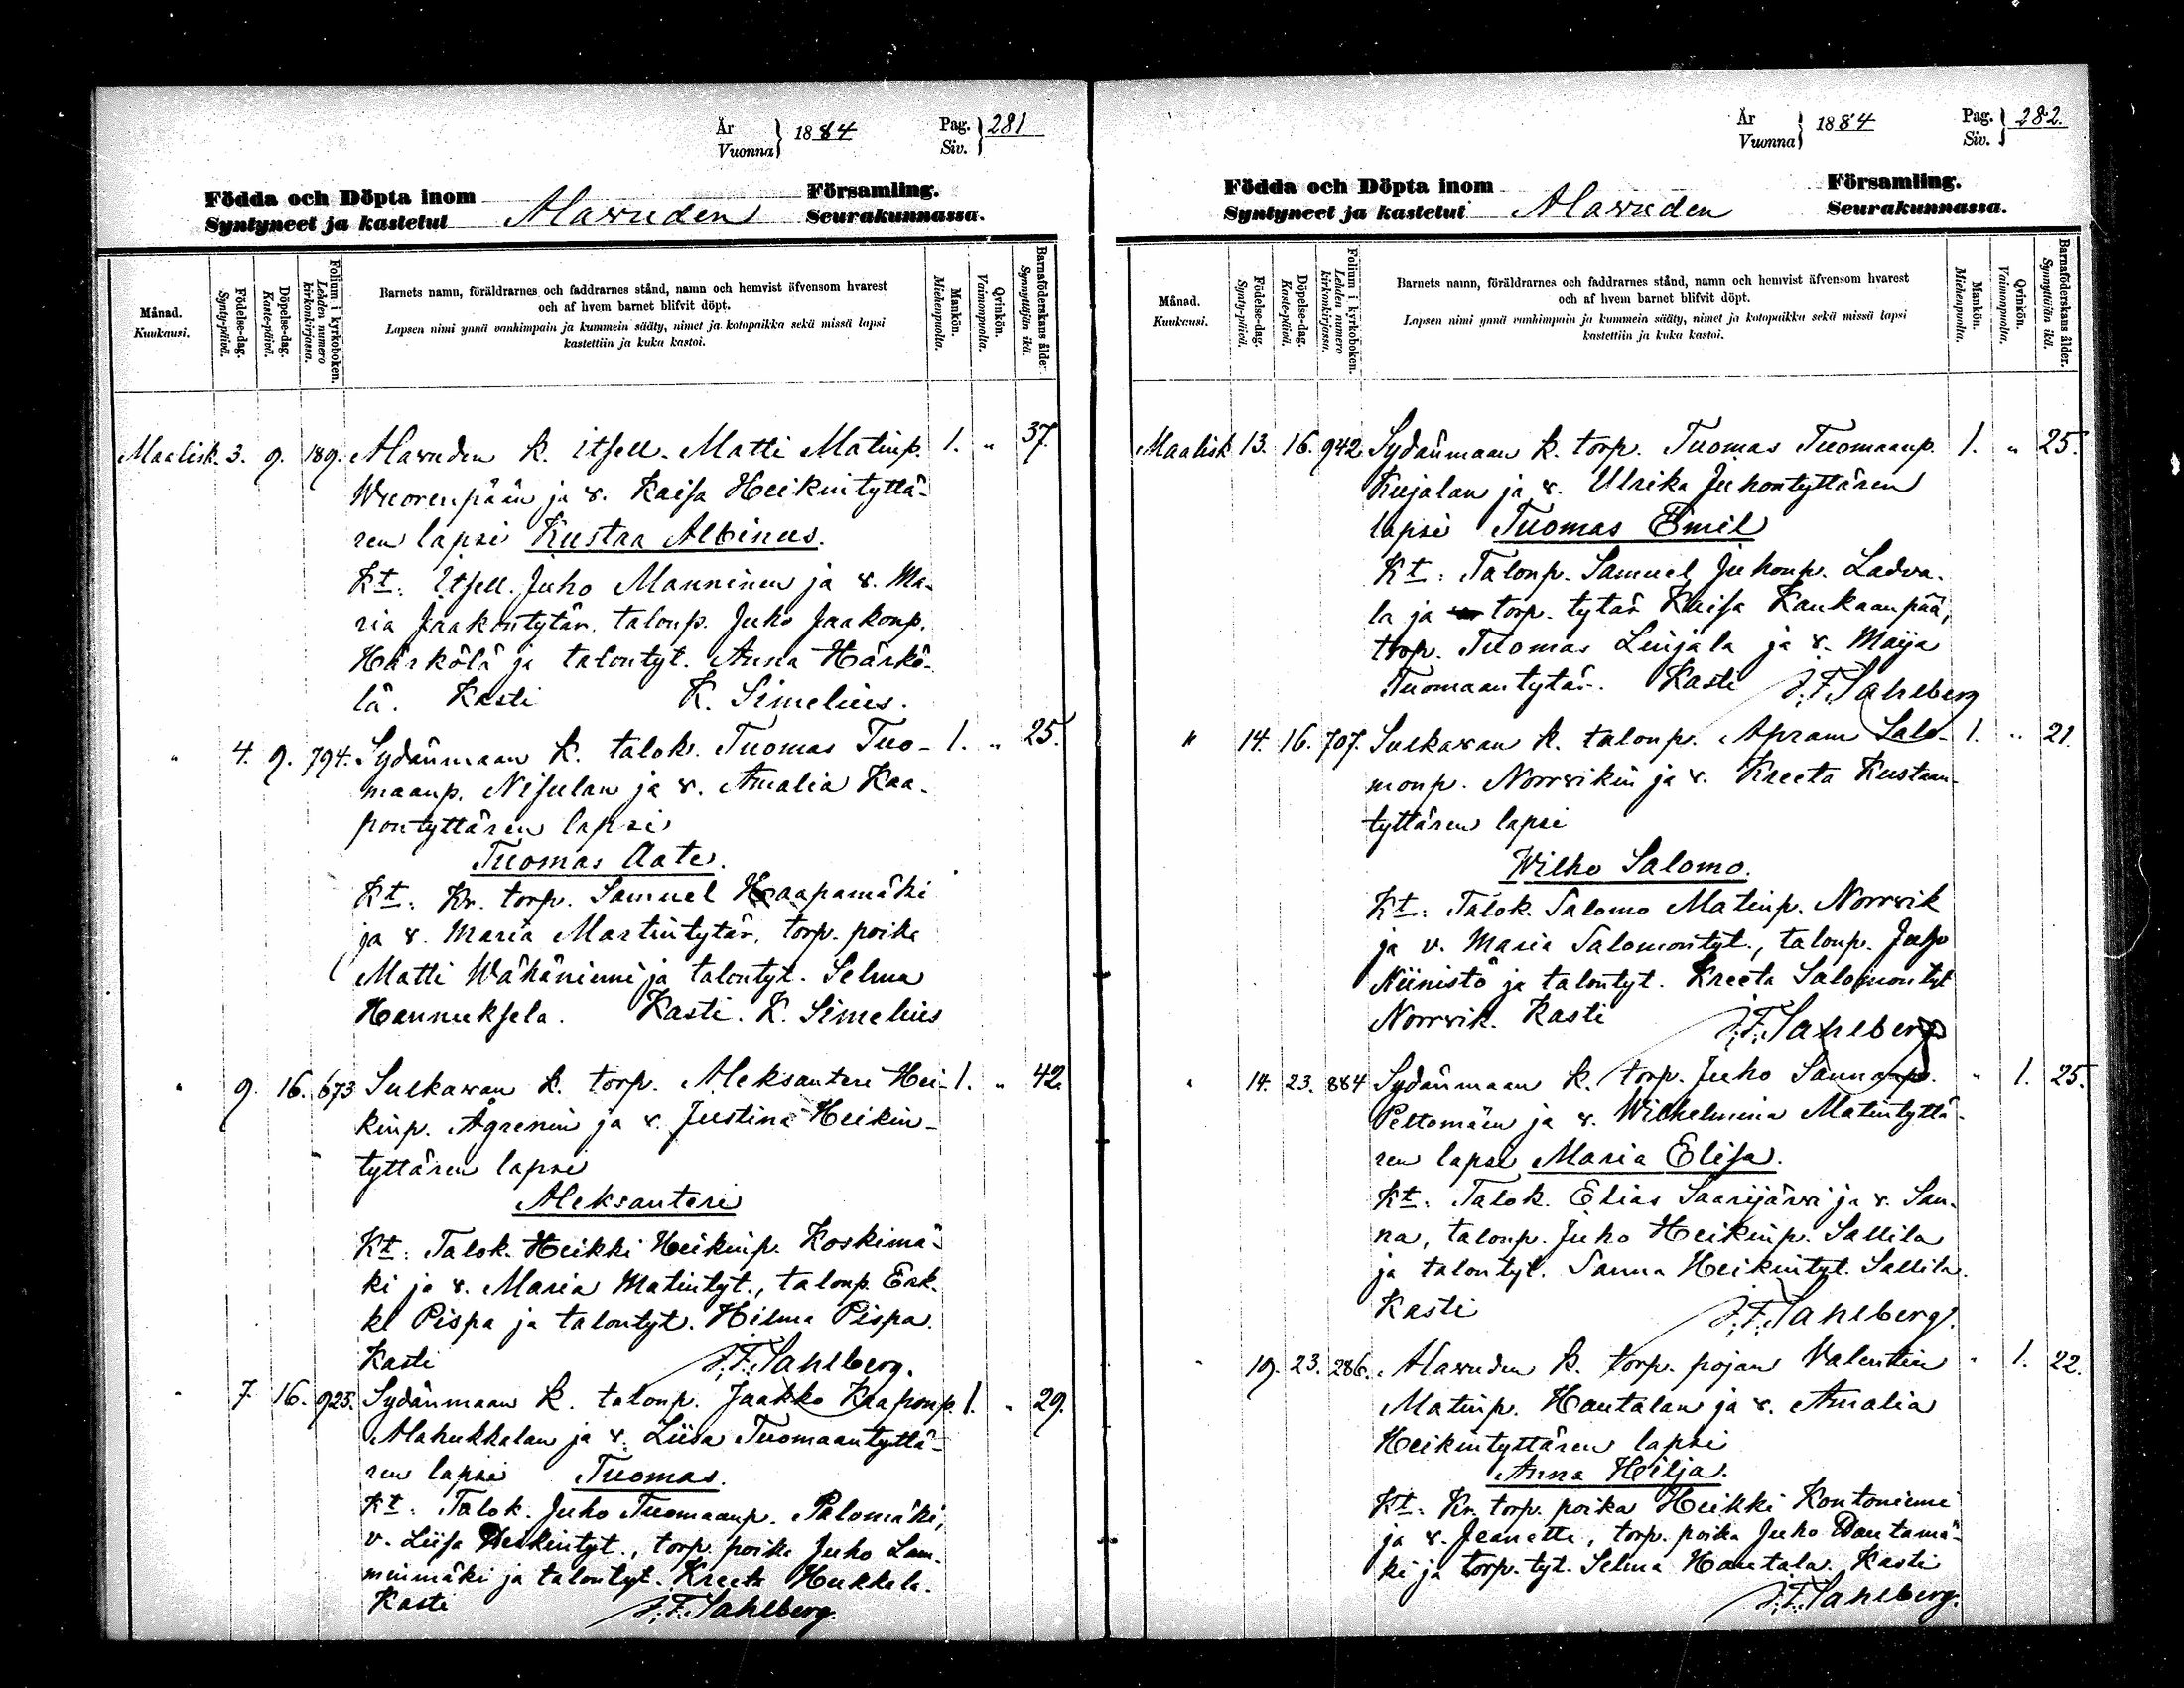 År
Vuonna
1884
Pag.
Siv.
281
Födda och Döpta inom Församling.
Syntyneet ja kastetut Alavuden Seurakunnassa.
Månad.
Kuukausi.
Födelse-dag.
Synty-päivä.
Döpelse-dag.
Kaste-päivä.
Folium i kyrkoboken.
Lehden numero kirkonkirjassa.
Barnets namn, föräldrarnes och faddrarnes stånd, namn och hemvist äfvensom hvarest
och af hvem barnet blifvit döpt.
Lapsen nimi ynnä vanhimpain ja kummein sääty, nimet ja kotopaikka sekä missä lapsi
kastettiin ja kuka kastoi.
Mankön.
Miehenpuolta.
Qvinkön.
Vaimonpuolta.
Barnaföderskans ålder.
Synnyttäjän ikä.
Maalisk. 3. 9. 189. Alavuden k. itsell. Matti Matinp. 1. " 37.
Wuorenpään ja v. Kaisa Heikintyttä-
ren lapsi Kustaa Albinus.
Kt: Itsell. Juho Manninen ja v. Ma-
ria Jaakontytär, talonp. Juho Jaakonp.
Härkölä ja talontyt. Anna Härkö-
lä. Kasti K. Simelius.
" 4. 9. 794. Sydänmaan k. talok. Tuomas Tuo- 1. " 25.
maanp. Nisulan ja v. Amalia Kaa-
pontyttären lapsi
Tuomas Aate.
Kt: Kr. torp. Samuel Haapamäki
ja v. Maria Martintytär, torp. poika
Matti Wähäniemi ja talontyt. Selma
Hannuksela. Kasti. K. Simelius
" 9. 16. 673 Sulkavan k. torp. Aleksanteri Hei- 1. " 42.
kinp. Ågrenin ja v. Justina Heikin-
tyttären lapsi
Aleksanteri
Kt: Talok. Heikki Heikinp. Koskimä-
ki ja v. Maria Matintyt., talonp. Erk-
ki Pispa ja talontyt. Hilma Pispa.
Kasti J. F. Sahlberg.
" 7 16. 925. Sydänmaan k. talonp. Jaakko Kaaponp. 1. " 29.
Alahukkalan ja v. Liisa Tuomaantyttä-
ren lapsi Tuomas.
Kt: Talok. Juho Tuomaanp. Palomäki,
v. Liisa Heikintyt., torp. poika Juho Lam-
minmäki ja talontyt. Kreeta Hukkala.
Kasti J. F. Sahlberg.
År
Vuonna
1884
Pag.
Siv.
282.
Födda och Döpta inom Församling.
Syntyneet ja kastetut Alavuden Seurakunnassa.
Månad.
Kuukausi.
Födelse-dag.
Synty-päivä.
Döpelse-dag.
Kaste-päivä.
Folium i kyrkoboken.
Lehden numero kirkonkirjassa.
Barnets namn, föräldrarnes och faddrarnes stånd, namn och hemvist äfvensom hvarest
och af hvem barnet blifvit döpt.
Lapsen nimi ynnä vanhimpain ja kummein sääty, nimet ja kotopaikka sekä missä lapsi
kastettiin ja kuka kastoi.
Mankön.
Miehenpuolta.
Qvinkön.
Vaimonpuolta.
Barnaföderskans ålder.
Synnyttäjän ikä.
Maalisk 13. 16. 942. Sydänmaan k. torp. Tuomas Tuomaanp. 1. " 25.
Kujalan ja v. Ulrika Juhontyttären
lapsi Tuomas Emil
Kt: Talonp. Samuel Juhonp. Ladva-
la ja torp. tytär Kaisa Kankaanpää,
torp. Tuomas Linjala ja v. Maija
Tuomaantytär. Kasti J. F. Sahlberg
" 14. 16. 707. Sulkavan k. talonp. Apram Salo- 1. " 21.
monp. Norrvikin ja v. Kreeta Kustaan-
tyttären lapsi
Wilho Salomo.
Kt: Talok. Salomo Matinp. Norrvik
ja v. Maria Salomontyt., talonp. Juho
Niinistö ja talontyt. Kreeta Salomontyt
Norrvik. Kasti J. F. Sahlberg
" 14. 23. 884 Sydänmaan k. torp. Juho Sannanp. " 1. 25.
Peltomäen ja v. Wilhelmina Matintyttä-
ren lapsi Maria Elisa.
Kt: Talok. Elias Saarijärvi ja v. San-
na, talonp. Juho Heikinp. Sallila
ja talontyt. Sanna Heikintyt. Sallila.
Kasti J. F. Sahlberg.
" 19. 23. 286. Alavuden k. torp. pojan Valentin " 1. 22.
Matinp. Hautalan ja v. Amalia
Heikintyttären lapsi
Anna Hilja.
Kt: Kr. torp. poika Heikki Kontoniemi
ja v. Jeanette, torp. poika Juho Rautamä-
ki ja torp. tyt. Selma Hautala. Kasti
J. F. Sahlberg.